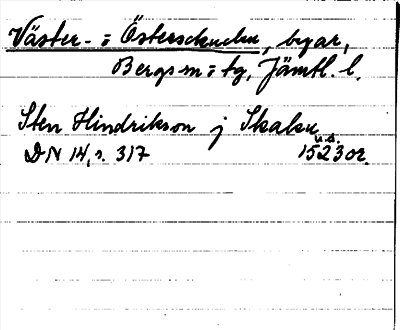 Väster- = Österskucku, byar,
Bergs sn = tg, Jämtl. l.
Sten Hindrikson j Skaku
u.a.
DN 14, s. 317 1523 or.